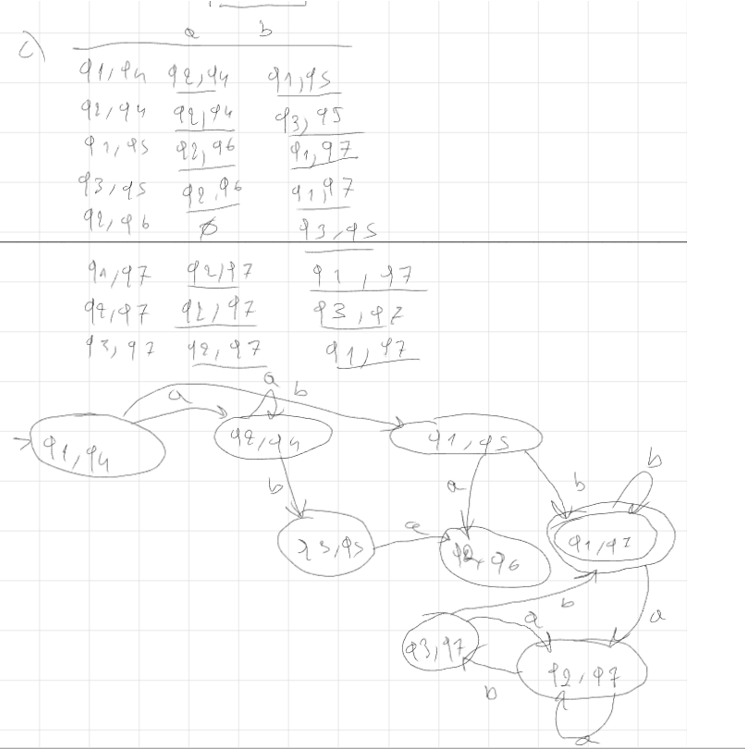 a b
c)
q1,q4 q2,q4 q1,q5
q2,q4 q2,q4 q3,q5
q1,q5 q2,q6 q1,q7
q3,q5 q2,q6 q1,q7
q2,q6 ∅ q3,q5
q1,q7 q2,q7 q1,q7
q2,q7 q2,q7 q3,q7
q3,q7 q2,q7 q1,q7
a
a b
q1,q4 q2,q4 q1,q5
b a b b
q3,q5 a q2,q6 q1,q7
b a a
q3,q7 q2,q7
b
a